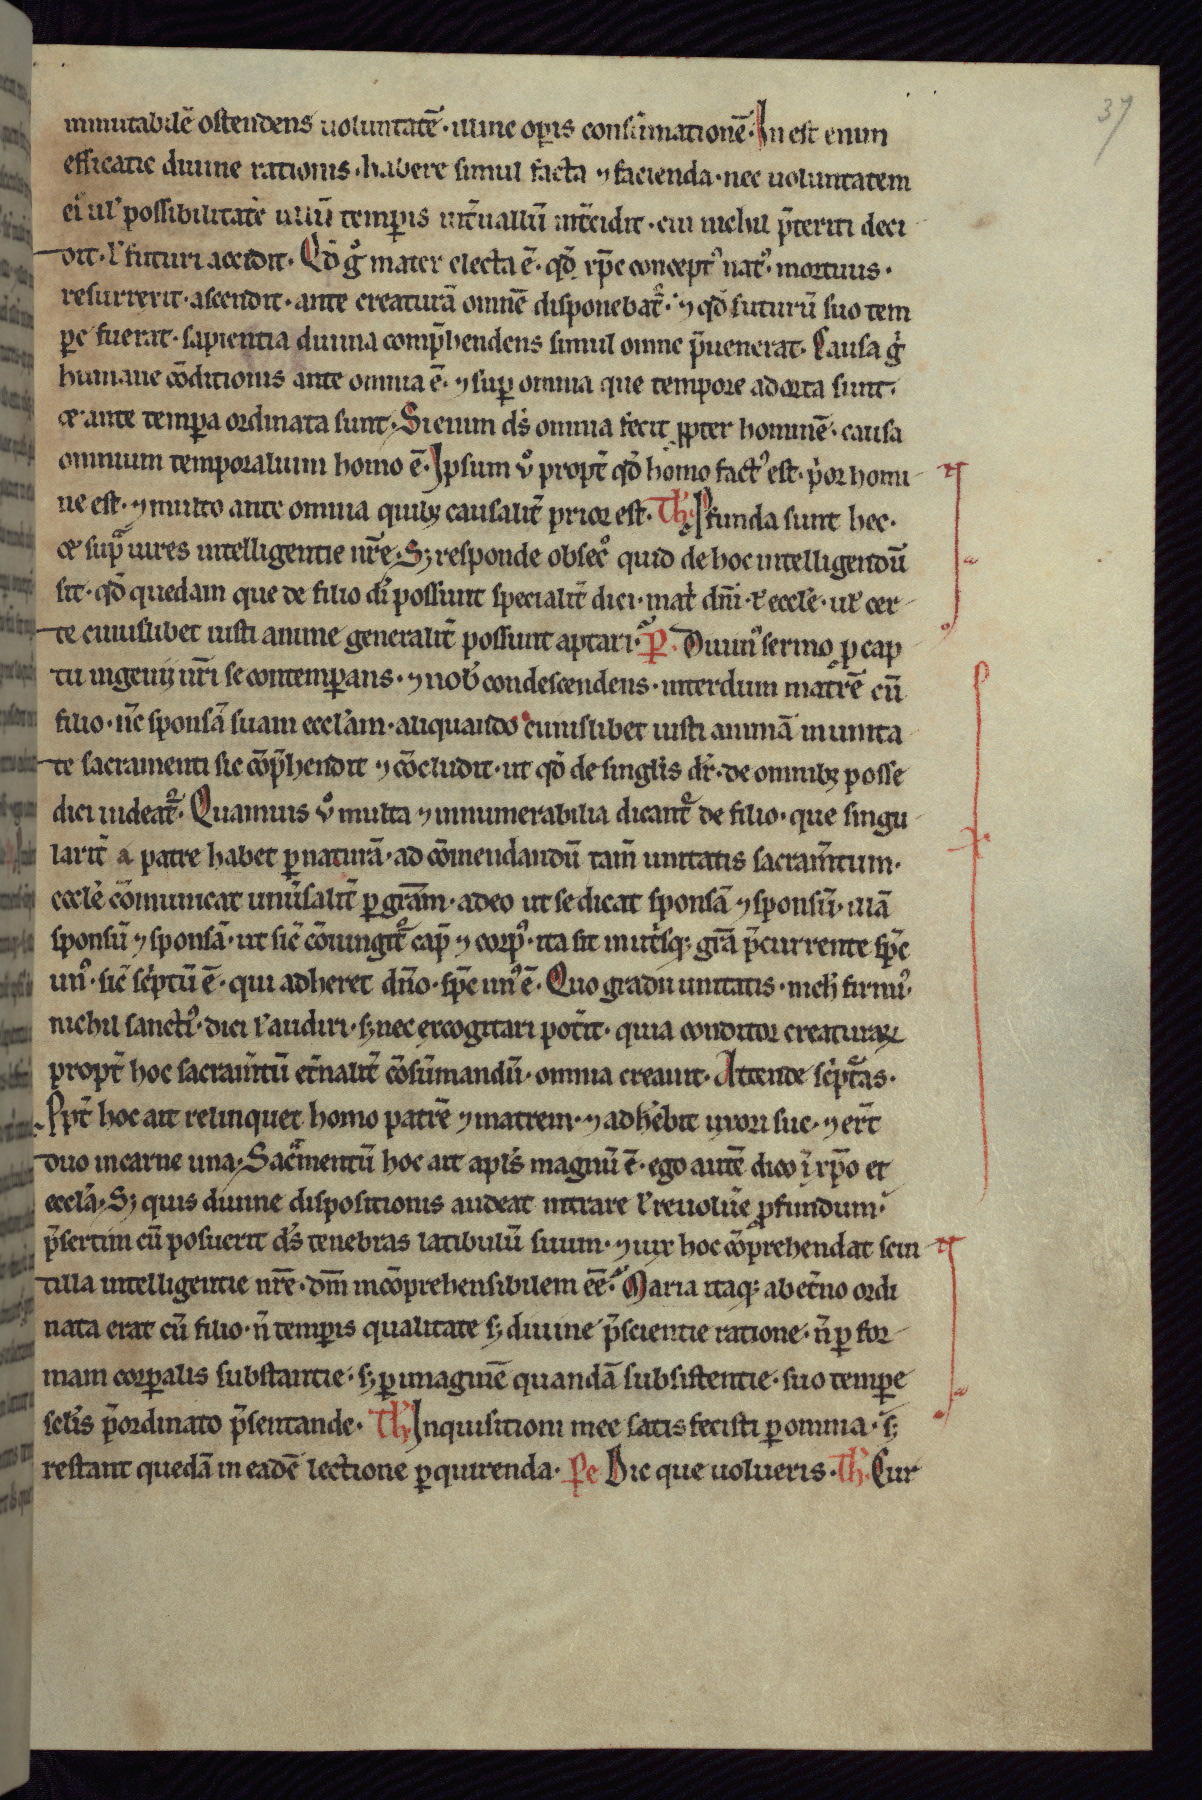 37
inmutabilē ostendens uoluntatē · nunc op̄is consūmationē · In est enim
efficatie diuine rationis · habere simul facta ⁊ facienda · nec uoluntatem
ei ul' possibilitatē ullū temp̄is int̄uallū int̄cidit · cui nichil p̄teriti deci
dit · l' futuri accidit · Qd̄ g̊ mater electa ē · qd̄ xp̄c concept᷒ nat᷒ · mortuus ·
resurrexit · ascendit · ante creaturā omnē disponebat᷑ · ⁊ qd̄ futurū suo tem
pe fuerat · sapientia diuina comp̄hendens simul omne p̄uenerat · Causa g̊
humane cōditionis ante omnia ē · ⁊ sup omnia que tempore adorta sunt ·
ce ante tempa ordinata sunt · Si enim ds̄ omnia fecit ꝓpter hominē · causa
omnium temporalium homo ē · Ipsum ů propt̄ qd̄ homo fact᷒ est · p̍or homi
ne est · ⁊ multo ante omnia quibꝫ causalit̄ prior est · Th̄. Ꝓfunda sunt hec ·
ce sup̄ uires intelligentie nr̄e · Sꝫ responde obsec̊ quid de hoc intelligendū
sit · qd̄ quedam que de filio di̅ possunt specialit̄ dici · mat̍ dn̄i · ł eccl̄e · ul' cer
te cuiuslibet iusti anime generalit̄ possunt aptari · P. Diuin᷒ sermo ꝓ cap
tu ingenij nr̄i se contemperans · ⁊ nob̄ condescendens · interdum matrē cū
filio · nc̄ sponsā suam eccl̄am · aliquando cuiuslibet iusti animā inunita
te sacramenti sic cōp̄hendit ⁊ cōcludit · ut qd̄ de singlis dr̄ · de omnibꝫ posse
dici uideat᷑ · Quamuis ů multa ⁊ innumerabilia dicant᷑ de filio · que singu
larit̄ a patre habet ꝑ naturā · ad cōmendandū tam̄ unitatis sacram̄tum ·
eccl̄e cōmunicat uniu̅salit̄ ꝑ gr̄am · adeo ut se dicat sponsā ⁊ sponsū · unā
sponsū ⁊ sponsā · ut sic̄ cōiungit᷑ cap̄ ⁊ corp᷒ · ita sit utrisqꝫ gr̄a p̄currente sp̄c
un᷒ · sic̄ sc̍ptū ē · qui adheret dn̄o · sp̄c un᷒ ē · Quo gradu unitatis · nich̄ firmi᷒ ·
nichil sancti᷒ · dici l' audiri · sꝫ nec excogitari pot̄it · quia conditor creaturaꝝ
propt̄ hoc sacram̄tū et̄nalit̄ cōsūmandū · omnia creauit · Attende sc̍pt̄as ·
Ꝓpt̄ hoc ait relinquet homo patrē ⁊ matrem · ⁊ adhēbit uxori sue · ⁊ er̄t
duo in carne una · Sac̄mentū hoc ait apl̄s magnū ē · ego autē dico ī xp̄o et
eccl̄a · Sꝫ quis diuine dispositionis audeat intrare l' reuolue̅ ꝓfundum ·
p̄sertim cū posuerit ds̄ tenebras latibulū suum · ⁊ uix hoc cōprehendat scin
tilla intelligentie nr̄e · dm̄ incōprehensibilem ēe · Maria itaqꝫ ab et̄no ordi
nata erat cū filio · n̄ temp̄is qualitate sꝫ diuine p̄scientie ratione · n̄ ꝑ for
mam corꝑalis substantie · sꝫ ꝑ imaginē quandā subsistentie · suo tempe
selis p̄ordinato p̄sentande · Th̄. Inquisitioni mee satis fecisti ꝑ omnia · sꝫ
restant quedā in eadē lectione ꝑquirenda · Pe Dic que uolueris · Th̄. Cur